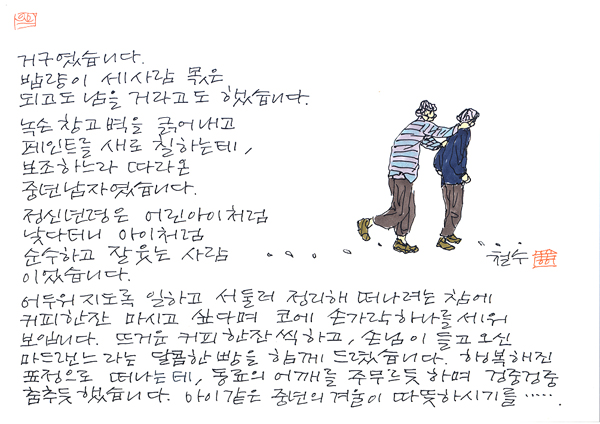 거구였습니다.
밥량이 세사람 몫은
되고도 남을 거라고도 했습니다.
녹슨 창고 벽을 긁어내고
페인트를 새로 칠하는데,
보조하느라 따라온
중년남자였습니다.
정신년령은 어린아이처럼
낮다더니 아이처럼
순수하고 잘웃는 사람
이었습니다.
철수
어두워지도록 일하고 서둘러 정리해 떠나려는 참에
커피한잔 마시고 싶다며 코에 손가락하나를 세워
보입니다. 뜨거운 커피한잔씩하고, 손님이 들고오신
마드랜느라는 달콤한빵을 함께 드렸습니다. 행복해진
표정으로 떠나는데, 동료의 어깨를 주무르듯 하며 겅중겅중
춤추듯했습니다. 아이같은 중년의 겨울이 따뜻하시기를‥‥‥.